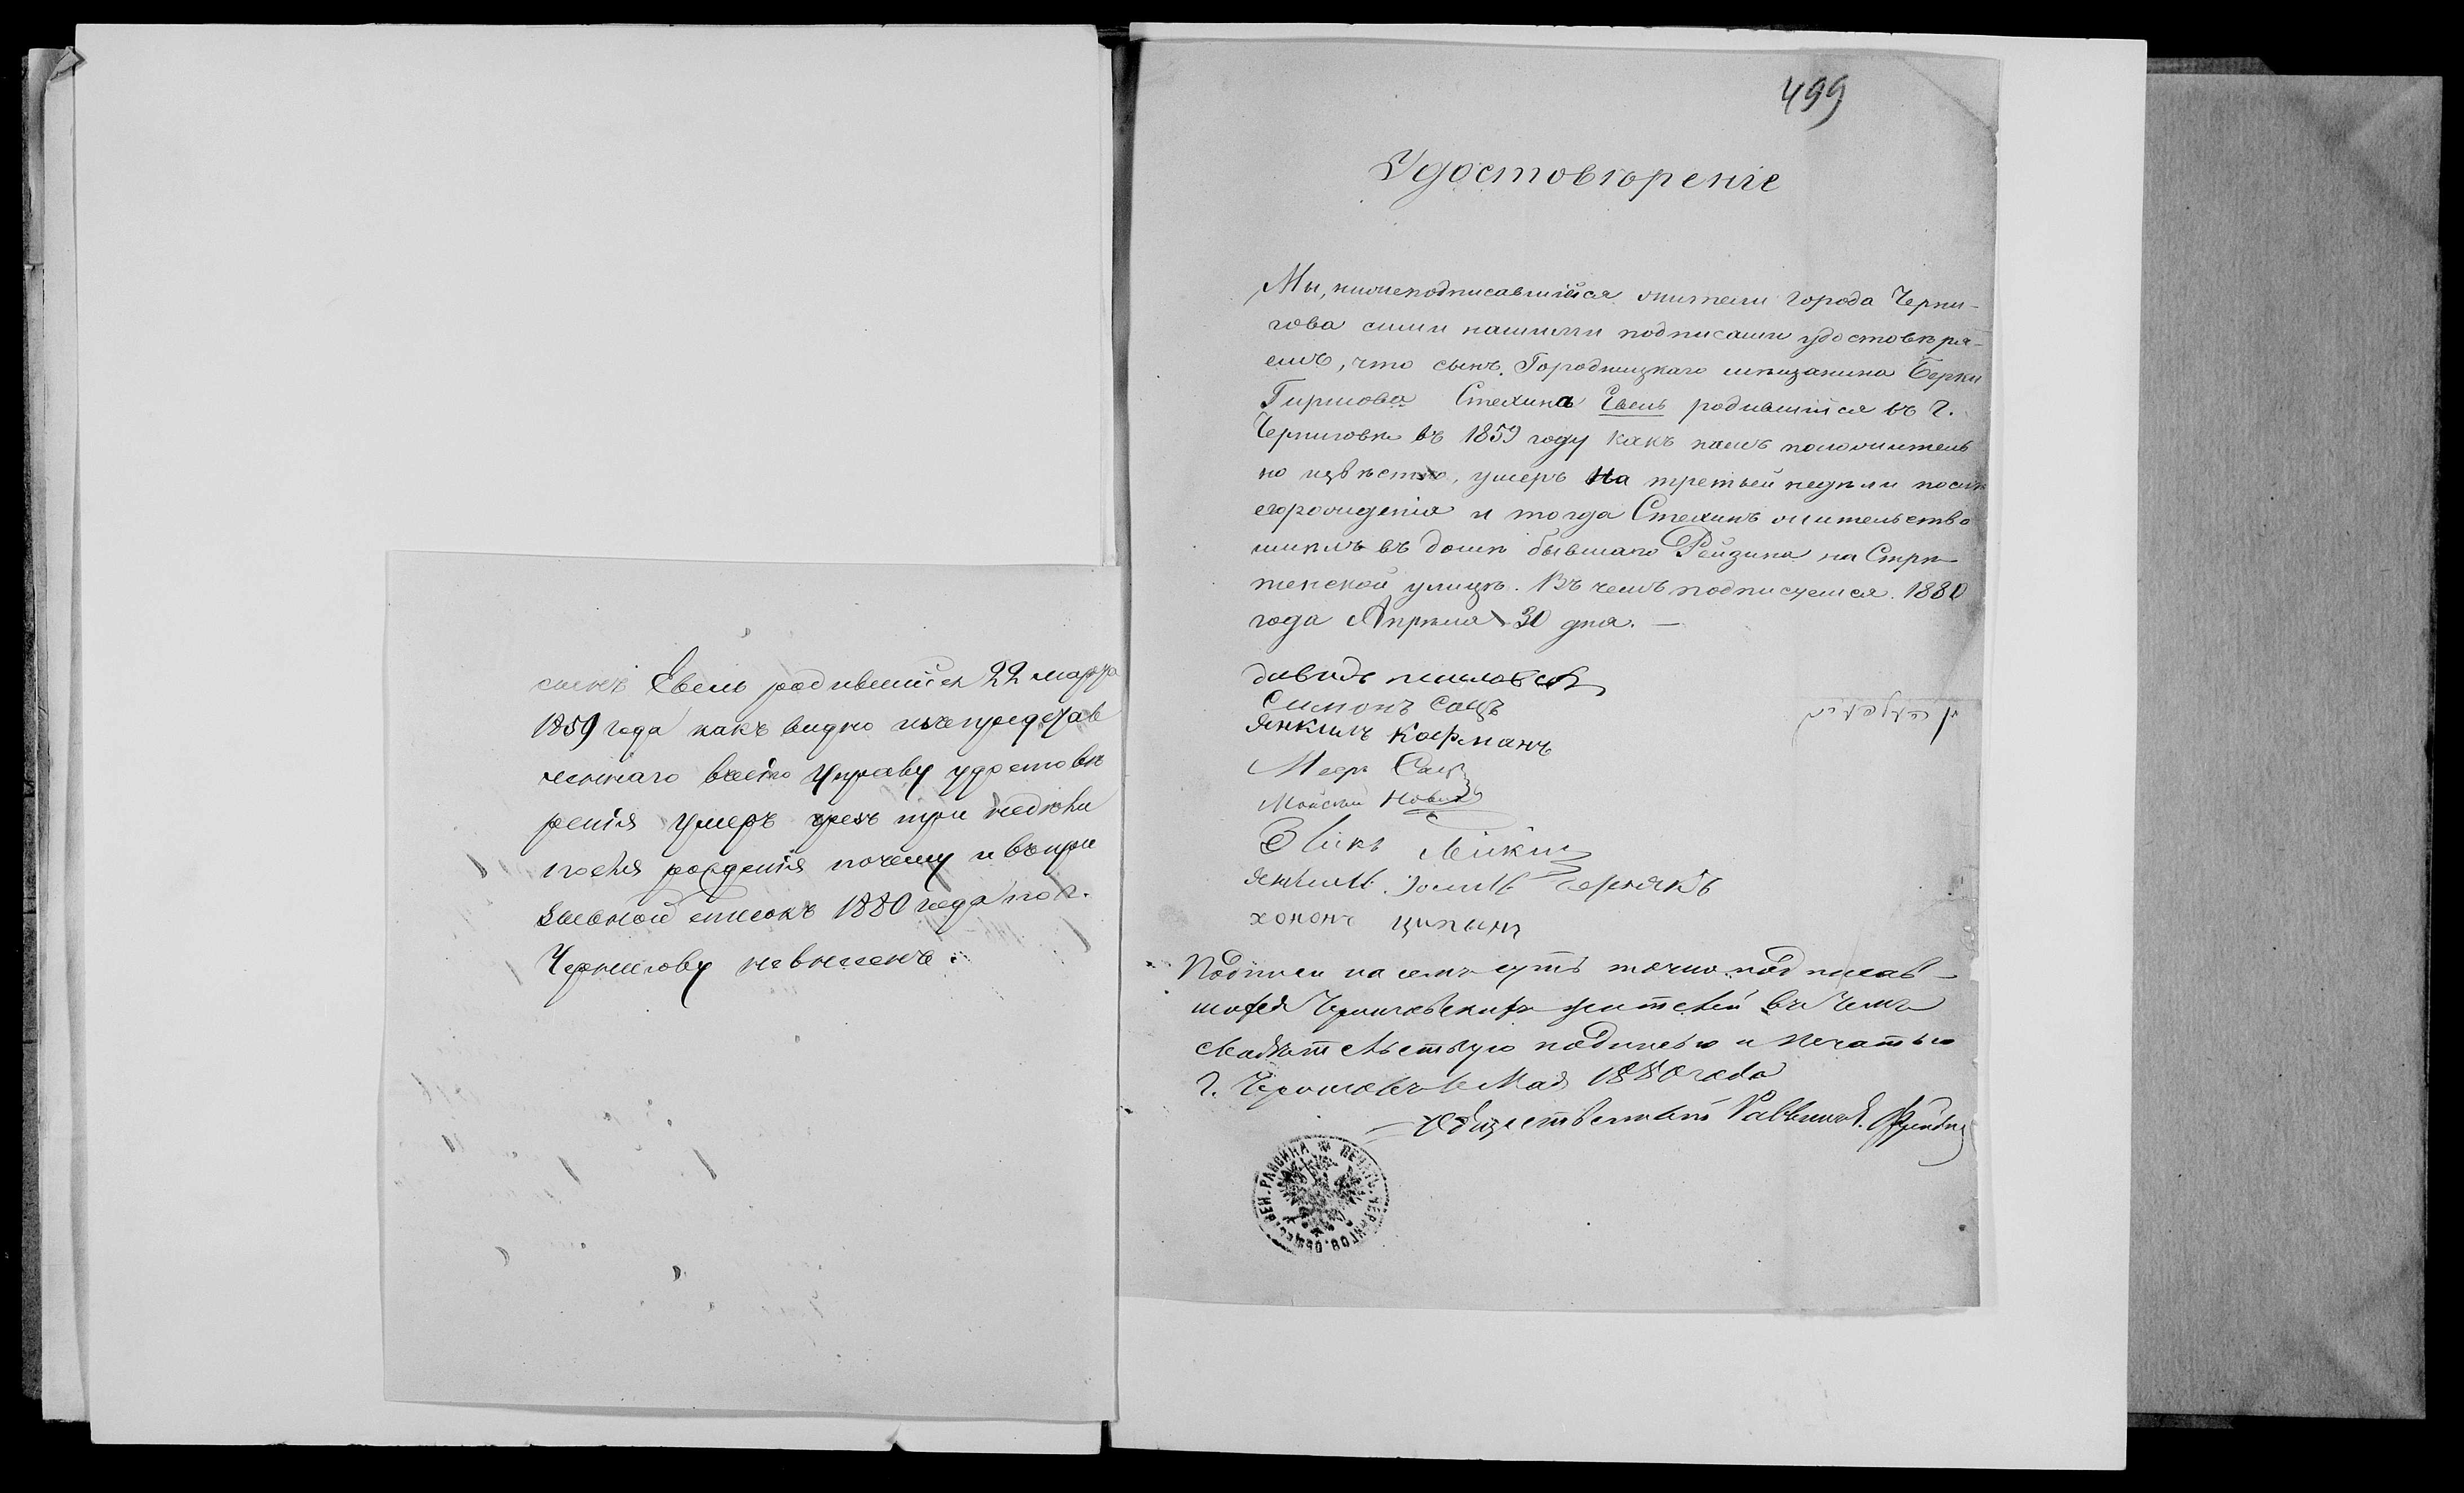 сынъ Евель родившійся 22 марта
1859 года какъ видно изъ представ
леннаго въ сію Управу удостовѣ
ренія умеръ чрезъ три недѣли
послѣ рожденія почему и въ при
зывной списокъ 1880 года по г.
Чернигову не внесенъ.
499
Удостовѣреніе
Мы, нижеподписавшіеся жители города Черни-
гова симъ нашими подписами удостовѣря-
емъ, что сынъ Городницкаго мѣщанина Берки
Гиршова Стехина Евель родившійся въ г.
Черниговѣ въ 1859 году какъ намъ положитель
но извѣстно, умеръ на третьей недѣли послѣ
его рожденія и тогда Стехинъ жительство
имѣлъ въ домѣ бывшаго Рейзина на Стрѣ-
тенской улицѣ. Въ чемъ подписуемся. 1880
года Апрѣля 30 дня. —
давидъ
Симонъ Сацъ
Янкиль Кофманъ
Мееръ Сац
Мойсей Новик
Эликъ Лейкин
Чернякъ
хононъ ципынъ
Подписи на семъ суть точно подписав-
шихся Черниговскихъ жителей въ чемъ
свидѣтельствую подписью и печатью
г. Черниговъ Мая 1880 года
Общественный Раввинъ
ПЕЧАТЬ ЧЕРНИГОВ. ОБЩЕСТВЕН. РАВВИНА